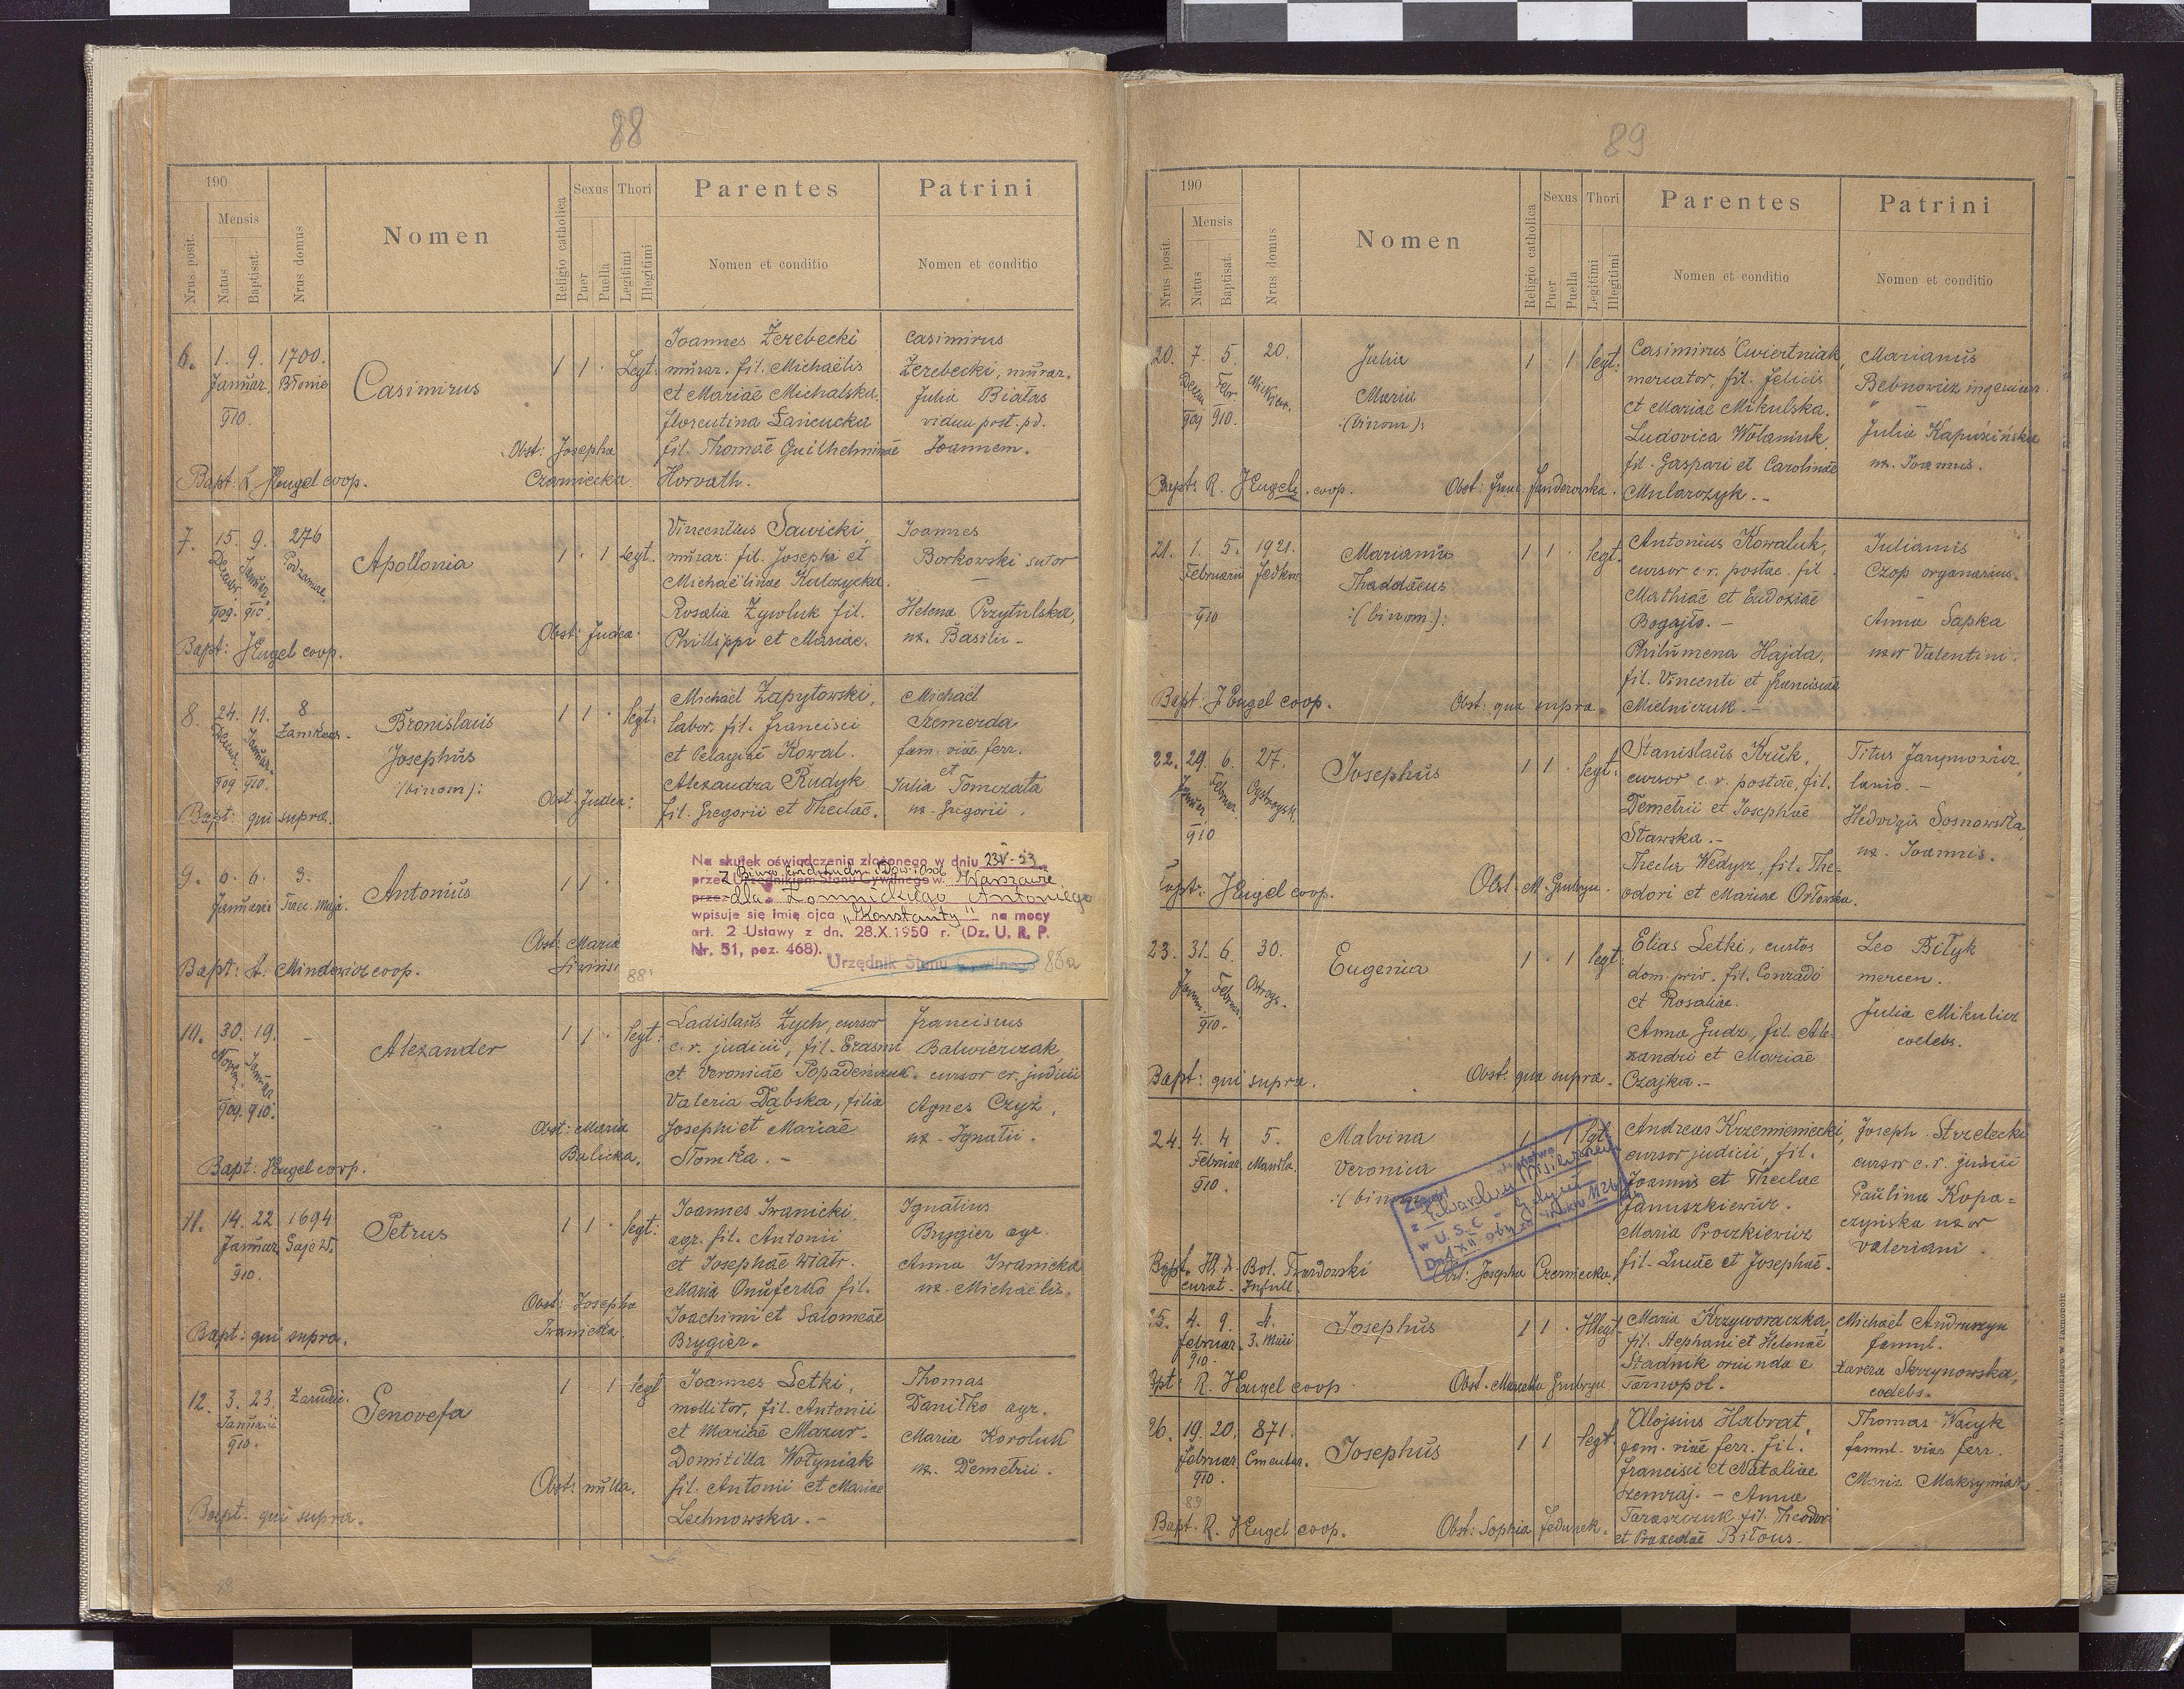 88
190
Nrus posit.
Mensis
Natus
Baptisat.
Nrus domus
Nomen
Religio catholica
Sexus
Puer
Puella
Thori
Legitimi
Illegitimi
Parentes
Nomen et conditio
Patrini
Nomen et conditio
6. 1. 9. 1700.
Januar. Błonie
910.
Casimirus
1 1 · Legt:
Joannes Żerebecki
murar. fil. Michaëlis
et Mariae Michalska.
Florentina Łańcucka
fil. Thomae Guilhelminae
Horvath.
Casimirus
Żerebecki, murar.
Julia Białas
vidua post. pd.
Joannem.
Obst: Josepha
Czarniecka.
Bapt: L. Hengel coop.
7. 15. 9. 276
Decembr. Januar. Podzamcze.
909. 910.
Apollonia
1 · 1 Legt.
Vincentius Sawicki,
murar: fil. Josephi et
Michaëlinae Kulczycka.
Rosalia Żywoluk fil.
Philippi et Mariae.
Joannes
Borkowski sutor
Helena Przytulska,
ux. Basilii -
Obst: Judea.
Bapt: J Hengel coop.
8. 24. 11. 8
Decem. Januar. Zamkowa.
909 910.
Bronislaus
Josephus
:/binom):
1 1 · legt:
Michaël Zapytowski,
labor. fil. Francisci
et Pelagiae Kowal.
Alexandra Rudyk
fil. Gregorii et Theclae.
Michaël
Szemerda
fam. viae ferr.
et
Julia Tomczata
ux. Gregorii.
Obst. Judea:
Bapt: qui supra.
9. 6. 6. 3.
Januarii Trzec. Maja.
Antonius
1 1 ·
Obst. Maria
Bapt: A. Mindowicz coop.
Na skutek oświadczenia złożonego w dniu 23 V-53
z Biura Ewidencji Dow. Osob.
przed Urzędnikiem Stanu Cywilnego w Warszawie
przez dla Łomnickiego Antoniego
wpisuje się imię ojca „Konstanty" na mocy
art. 2 Ustawy z dn. 28.X.1950 r. (Dz. U. R. P.
Nr. 51, poz. 468).
Urzędnik Stanu Cywilnego 88a
88'
10. 30. 19. -
Novbr. Januar
909. 910.
Alexander
1 1 · legt:
Ladislaus Zych, cursor
c. r. judicii, fil. Erasmi
et Veronicae Popadeńczuk.
Valeria Dąbska, filia
Josephi et Mariae
Słomka. -
Franciscus
Balwierczak,
cursor cr. judicii
Agnes Czyż,
ux. Ignatii.
Obst: Maria
Balicka.
Bapt: Hengel coop.
11. 14. 22 1694
Januar Gaje W.
910.
Petrus
1 1 · legt:
Joannes Iwanicki
agr. fil. Antonii
et Josephae Wiatr.
Maria Onuferko fil.
Joachimi et Salomeae
Brygier.
Ignatius
Brygier agr.
Anna Iwanicka
ux. Michaëlis.
Obst: Josepha
Iwanicka.
Bapt: qui supra.
12. 3. 23. Zarudzi.
Januarii
910.
Genovefa
1 1 legt
Joannes Letki,
mollitor, fil. Antonii
et Mariae Mazur.
Domitilla Wołyniak
fil. Antonii et Mariae
Lechnowska. -
Thomas
Daniłko agr.
Maria Koroluk
ux. Demetrii.
Obst: nulla.
Bapt- qui supra.
89
190
Nrus posit.
Mensis
Natus
Baptisat.
Nrus domus
Nomen
Religio catholica
Sexus
Puer
Puella
Thori
Legitimi
Illegitimi
Parentes
Nomen et conditio
Patrini
Nomen et conditio
20. 7. 5. 20.
Decem Febr. Mickiew.
909 910.
Julia
Maria
:(binom):
1 · 1 legt:
Casimirus Cwiertniak,
mercator, fil. Felicis
et Mariae Mikulska.
Ludovica Wolaniuk
fil. Gaspari et Carolinae
Mularczyk. -
Marianus
Bebnowicz ingenieur.
Julia Kapuścińska
ux. Joannis.
Bapt: R. J Hengel. coop.
Obst: Anna Janderowska.
21. 1. 5. 1921.
Februarii Jedkow
910
Marianus
Thaddaeus
:(binom.):
1 1 · legt:
Antonius Kowaluk,
cursor c. r. postae. fil.
Mathiae et Eudoxiae
Bogajło. -
Philumena Hajda,
fil. Vincenti et Franciscae
Mielniczuk. -
Julianus
Czop organarius.
Anna Sapka
uxor Valentini.
Bapt: J Hengel coop.
Obst: qua supra.
22. 29. 6. 27.
Januar Februar Ostrogsk.
910
Josephus
1 1 · legt:
Stanislaus Kruk,
cursor c. r. postae, fil.
Demetrii et Josephae
Stawska. -
Thecla Wedysz, fil. The-
odori et Mariae Orłowska.
Titus Jarymowicz
lanio. -
Hedvigis Sosnowska,
ux. Joannis.
Bapt: J Hengel coop.
Obst: M. Gmbryn.
23. 31. 6. 30.
Januar Februar. Ostrogs.
910.
Eugenia
1 · 1 legt:
Elias Letki, custos
dom. priv. fil. Conradi
et Rosaliae.
Anna Gudz, fil. Ale-
xandri et Mariae
Czajka. -
Leo Biłyk
mercen.
Julia Mikulicz
coelebs.
Bapt: qui supra.
Obst: qua supra.
24. 4. 4 5.
Februar.
910.
Malvina
Veronica
:(binom
1 · 1 lgt:
Andreas Krzemieniecki,
cursor judicii, fil.
Joannis et Theclae
Januszkiewicz.
Maria Proczkiewicz
fil. Lucae et Josephae.
Joseph Strzelecki
cursor c. r. judicii
Paulina Kopa=
czyńska uxor
Valeriani.
Bol. Twardowski
curat. Infull.
Obst: Josepha Czerniecka.
w U.S.C.
25. 4. 9. 4.
Februar. 3. Maii
910.
Josephus
1 1 · Illegt.
Maria Krzyworaczka,
fil. Stephani et Helenae
Stadnik oriunda e
Tarnopol.
Michaël Andruszyn
famul.
Xavera Skrzynowska,
coelebs.
Bpt: R. Hengel coop
Obst. Marcella Gmbryn.
26. 19. 20. 871.
Februar. Cmentar.
910.
Josephus
1 1 legt.
Alojsius Habrat,
fam. viae ferr. fil.
Francisci et Nataliae
Szemraj. - Anna
Taraszczuk fil. Theodori
et Praxedae Biłous.
Thomas Wacyk
famul. viae ferr.
Maria Maksymiak
89
Bapt. R. J Hengel coop.
Obst: Sophia Fedunek.